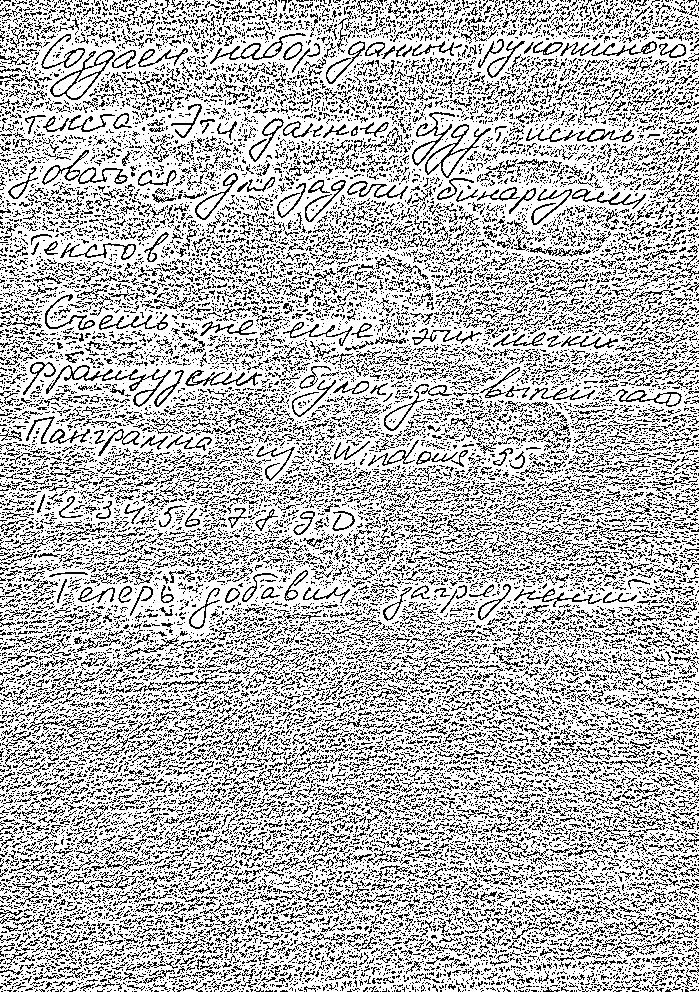 Создаем набор данных рукописного
текста. Эти данные будут исполь-
зоваться для задачи бинаризации
текстов.
Съешь же еще этих мягких
французских булок, да выпей чаю
Панграмма из Windows 95
1 2 3 4 5 6 7 8 9 0
Теперь добавим загрязнений